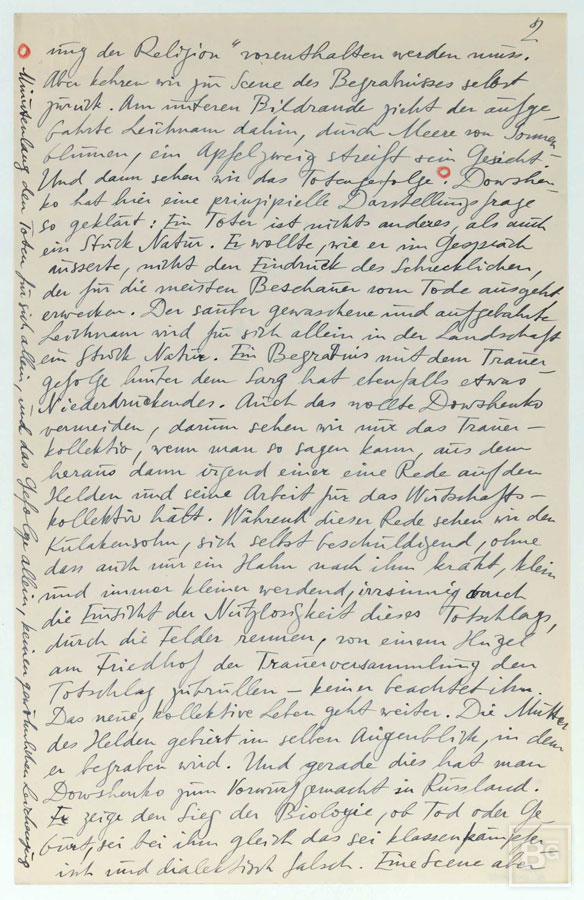 2
ung der Religion" vorenthalten werden muss.
Aber kehren wir zur Scene des Begräbnisses selbst
zurück. Am unteren Bildrande zieht der aufge-
bahrte Leichnam dahin, durch Meere von Sonnen
blumen, ein Apfelzweig streift sein Gesicht –
Und dann sehen wir das Totengefolge. Dowshen-
ko hat hier eine prinzipielle Darstellungsfrage
so geklärt: Ein Toter ist nichts anderes, als auch
ein Stück Natur. Er wollte, wie er im Gespräch
äusserte, nicht den Eindruck des Schrecklichen,
der für die meisten Beschauer vom Tode ausgeht
erwecken. Der sauber gewaschene und aufgebahrte
Leichnam wird für sich allein in der Landschaft
ein Stück Natur. Ein Begräbnis mit dem Trauer-
gefolge hinter dem Sarg hat ebenfalls etwas
Niederdrückendes. Auch das wollte Dowshenko
vermeiden, darum sehen wir nur das Trauer-
kollektiv, wenn man so sagen kann, aus dem
heraus dann irgend einer eine Rede auf den
Helden und seine Arbeit für das Wirtschafts-
kollektiv hält. Während dieser Rede sehen wir den
Kulakensohn, sich selbst beschuldigend, ohne
dass auch nur ein Hahn nach ihm kräht, klein
und immer kleiner werdend, irrsinnig durch
die Einsicht der Nutzlosigkeit dieses Totschlags,
durch die Felder rennen, von einem Hügel
am Friedhof der Trauerversammlung den
Totschlag zubrüllen – keiner beachtet ihn.
Das neue, kollektive Leben geht weiter. Die Mutter
des Helden gebiert im selben Augenblick, in dem
er begraben wird. Und gerade dies hat man
Dowshenko zum Vorwurf gemacht in Russland.
Er zeige den Sieg der Biologie, ob Tod oder Ge
burt, sei bei ihm gleich das sei klassenkämpfe
isch und dialektisch falsch. Eine Scene aber
Minutenlang den Toten für sich allein, und das Gefolge allein, keinen gewöhnlichen Leichenzug
BG